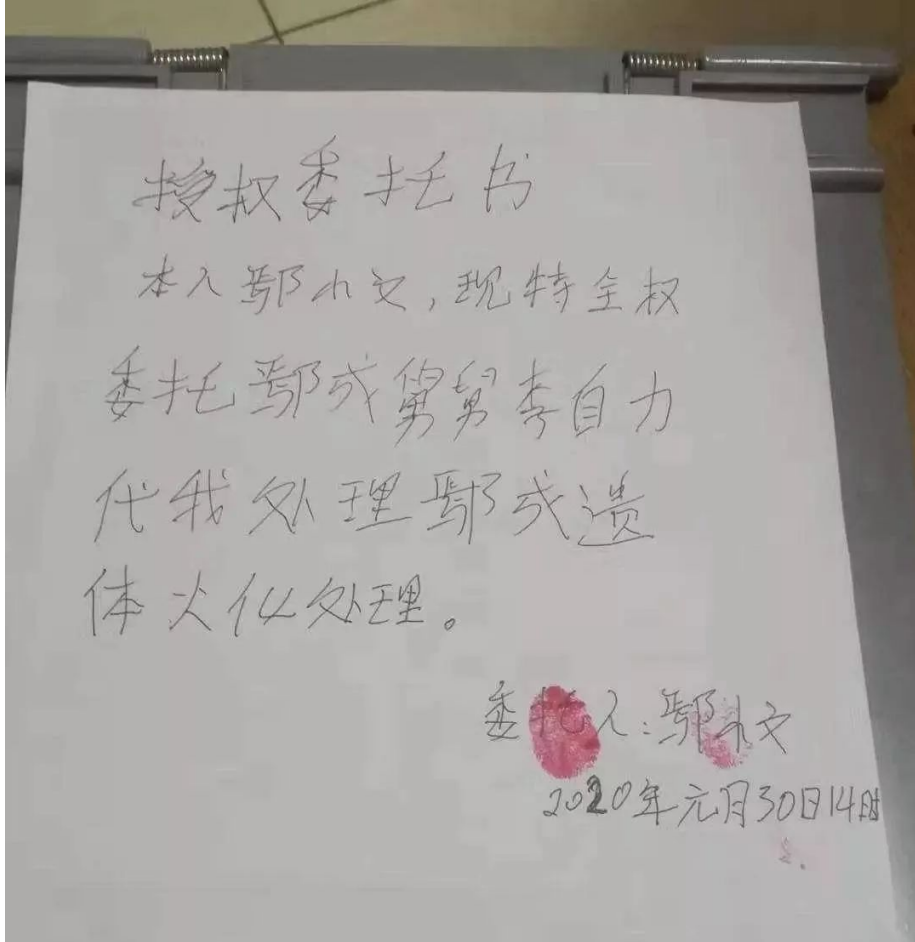 授权委托书
本人鄢小文,现特全权
委托鄢成舅舅李自力
代我处理鄢成遗
体火化处理。
委托人:鄢小文
2020年元月30日14时